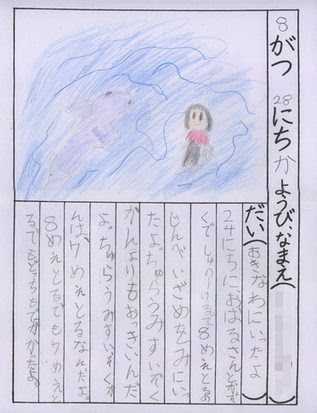 8がつ28にちかようび、なまえ(
だい(おきなわにいったよ)
24にちにおばるさんとかぞ
くで 8めえとる
じんべいざめをみにいっ
たよ。ちゅらうみすいぞく
かんよりもおっきいんだ
よ。ちゅらうみすいぞくか
んは、7めえとるなんだよ。
8めえとるでも7めえと
るでもどっちもでかかたよ。